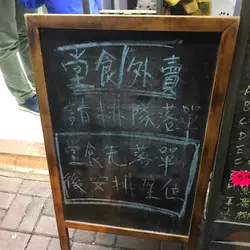 堂食外賣
請排隊落單
堂食先落單
後安排座位